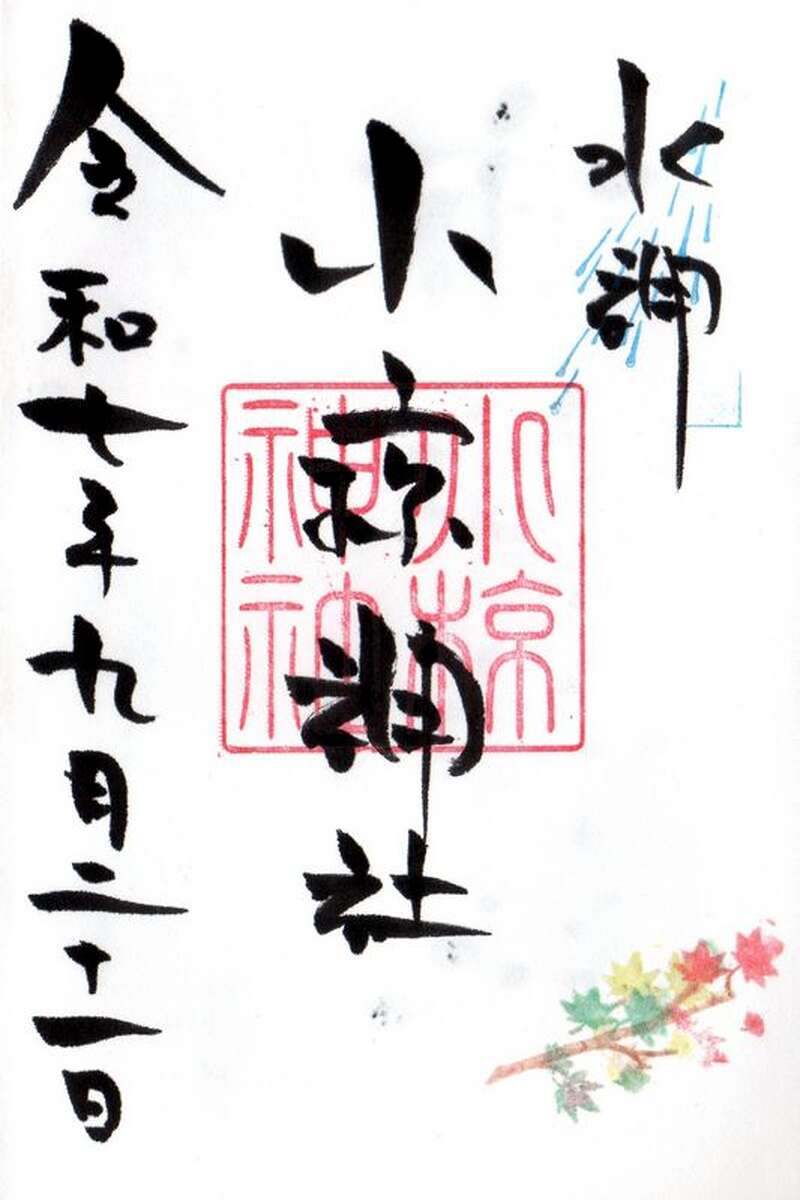 水神
小椋神社
小椋
神社
令和七年九月二十一日